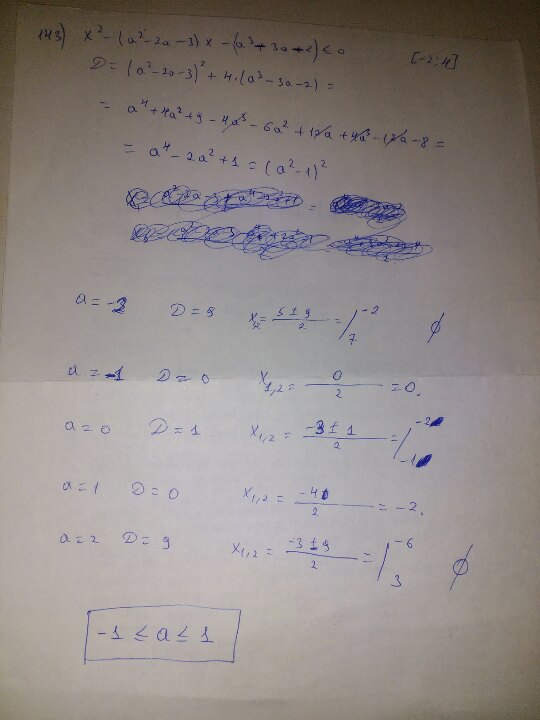 143) x² - (a² - 2a - 3)x - (a³ + 3a + 2) ≤ 0 [-2; 4]
D = (a² - 2a - 3)² + 4·(a³ - 3a - 2) =
= a⁴ + 4a² + 9 - 4a³ - 6a² + 12a + 4a³ - 12a - 8 =
= a⁴ - 2a² + 1 = (a² - 1)²
a = -2 D = 9 x = 5 ± 9 / 2 = / -2 7 ∅
a = -1 D = 0 x₁,₂ = 0 / 2 = 0.
a = 0 D = 1 x₁,₂ = -3 ± 1 / 2 = / -2 -1
a = 1 D = 0 x₁,₂ = -4 / 2 = -2.
a = 2 D = 9 x₁,₂ = -3 ± 9 / 2 = / -6 3 ∅
-1 ≤ a ≤ 1